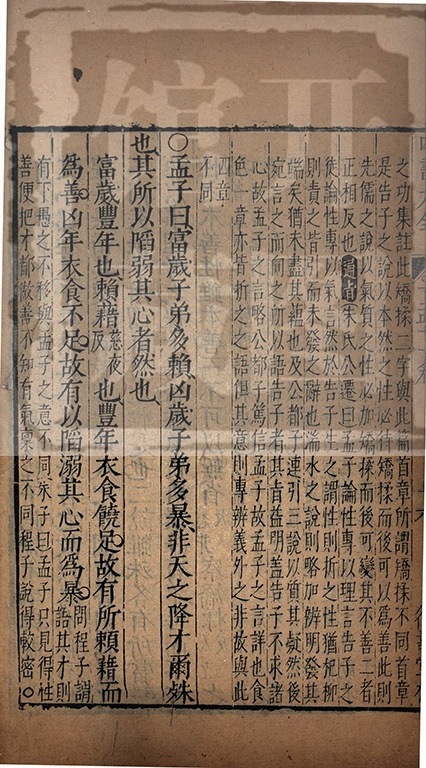 之功集註此矯揉二字與此篇首章所謂矯揉不同首章
是告子之說以本然之性必待矯揉而後可以為善此則
先儒之說以氣質之性必加矯揉而後可變其不善二者
正相反也通旨朱氏公遷曰孟子論性專以理言告子之
徒論性專以氣言然於告子生之謂性則折之性猶杞柳
則責之皆引而未發之辭也湍水之說則略加辨明發其
端矣猶未盡其蘊也及公都子連引三說以質其疑然後
宛言之而向之所以語告子者其肯益明蓋告子不求諸
心故孟子之言略公都子篤信孟子故孟子之言詳也食
色一章亦皆折之之語但其意則專辨義外之非故與此
四章
不同
○孟子曰富歲子弟多賴凶歲子弟多暴非天之降才爾殊
也其所以陷弱其心者然也
富歲豐年也賴藉慈夜反也豐年衣食饒足故有所賴藉而
為善凶年衣食不足故有以陷溺其心而為暴問程子謂語其才則
有下愚之不移與孟子之意不同朱子曰孟子只見得性
善便把才都做善不知有氣稟之不同程子說得較密○